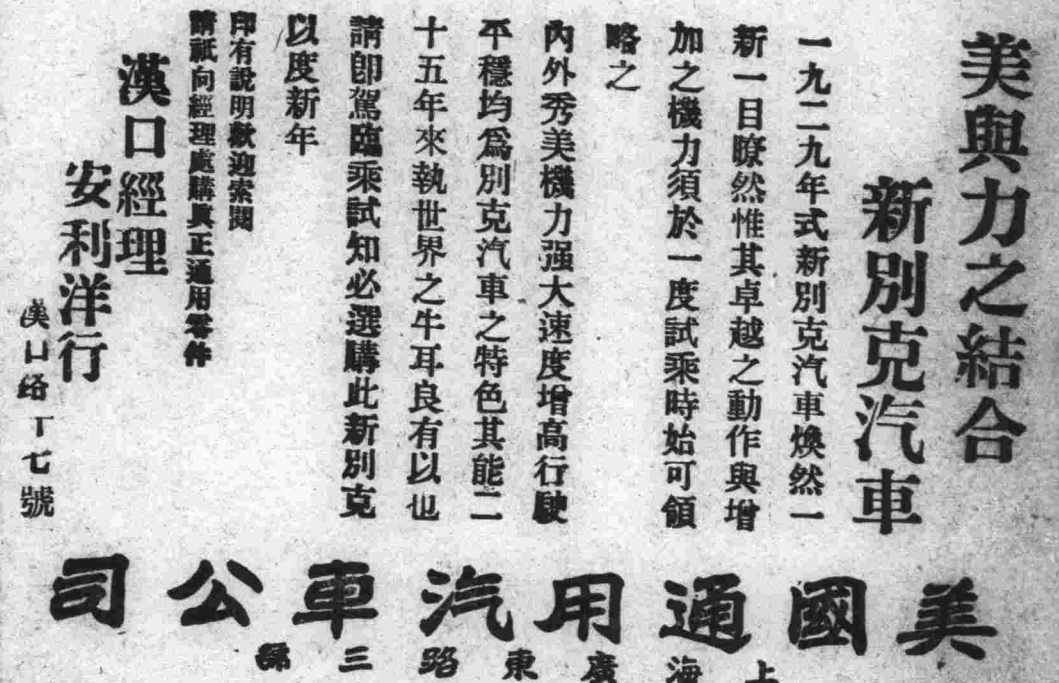 美與力之結合
新別克汽車
一九二九年式新別克汽車煥然一
新一目瞭然惟其卓越之動作與增
加之機力須於一度試乘時始可領
略之
內外秀美機力强大速度增高行駛
平穩均爲別克汽車之特色其能二
十五年來執世界之牛耳良有以也
請卽駕臨乘試知必選購此新別克
以度新年
印有說明歡迎索閱
請祇向經理處購眞正通用零件
漢口經理
安利洋行
漢口路丁七號
美國通用汽車公司
上海廣東路三號